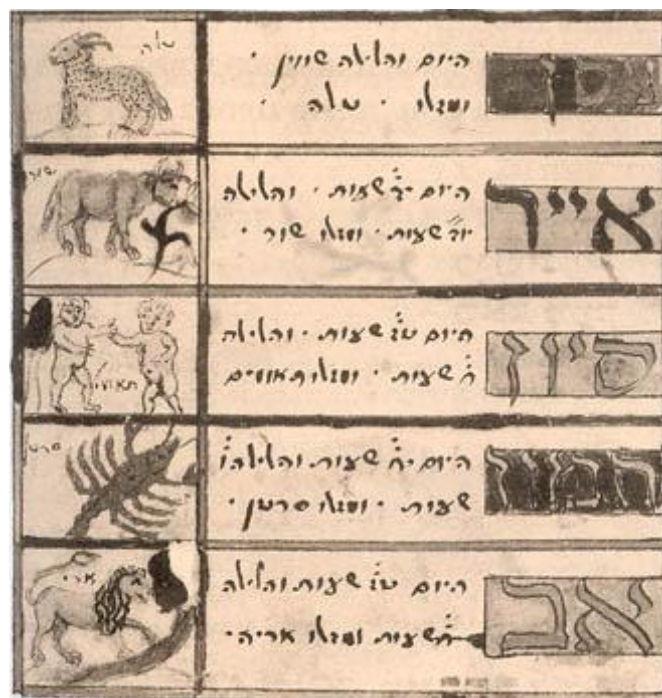 היום והלילה שווין ·
ומזלו · טלה ·
טלה
אייר
היום שעות · והלילה
שעות · ומזלו שור ·
סיון
היום טז שעות · והלילה
ח שעות · ומזלו תאומים
תאומי
תמוז
היום יח שעות והלילה ו
שעות · ומזלו סרטן ·
סרטן
אב
היום טז שעות והלילה
ח שעות ומזלו אריה ·
ארי